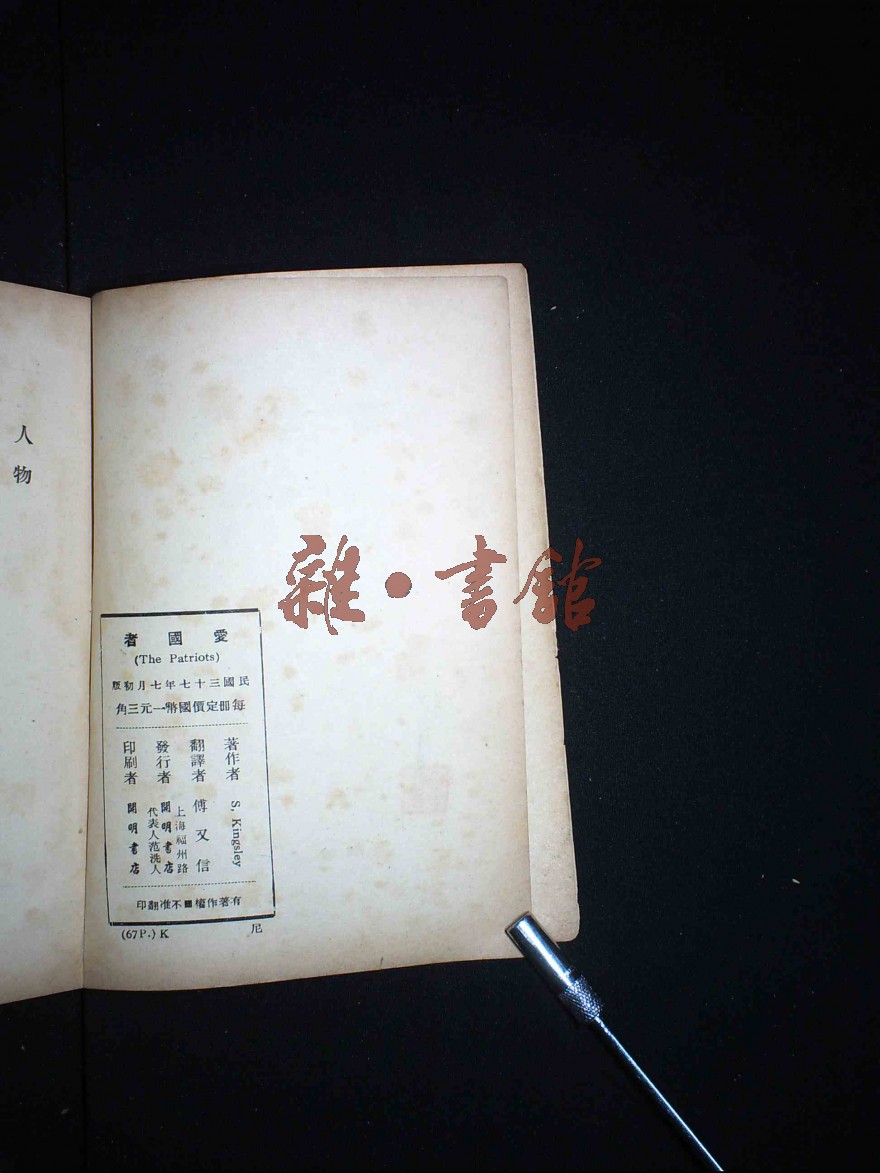 人物
雜·書館
愛國者
(The Patriots)
民國三十七年七月初版
每冊定價國幣一元三角
著作者 S. Kingsley
翻譯者 傅又信
發行者 開明書店
上海福州路
代表人范洗人
印刷者 開明書店
有著作權■不准翻印
(67P.) K
尼